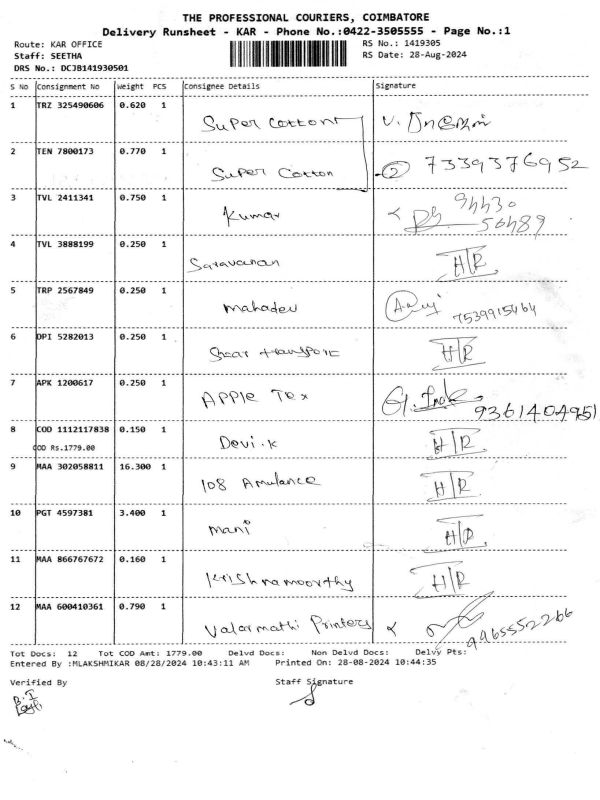 THE PROFESSIONAL COURIERS, COIMBATORE
Delivery Runsheet - KAR - Phone No.:0422-3505555 - Page No.:1
Route: KAR OFFICE
RS No.: 1419305
Staff: SEETHA
RS Date: 28-Aug-2024
DRS No.: DCJB141930501
S No Consignment No Weight PCS Consignee Details Signature
1 TRZ 325490606 0.620 1 Super Cotton
2 TEN 7800173 0.770 1 Super Cotton 2 7339376952
3 TVL 2411341 0.750 1 Kumar 94430
56489
4 TVL 3888199 0.250 1 Saravanan H/R
5 TRP 2567849 0.250 1 mahadev 7539915464
6 DPI 5282013 0.250 1 transport H/R
7 APK 1200617 0.250 1 APPle Tex 9361404951
8 COD 1112117838 0.150 1 Devi.k H/R
COD Rs.1779.00
9 MAA 302058811 16.300 1 108 Amulance H/R
10 PGT 4597381 3.400 1 mani H/R
11 MAA 866767672 0.160 1 Krishnamoorthy H/R
12 MAA 600410361 0.790 1 Valarmathi Printers 9965552266
Tot Docs: 12 Tot COD Amt: 1779.00 Delvd Docs: Non Delvd Docs: Delvy Pts:
Entered By :MLAKSHMIKAR 08/28/2024 10:43:11 AM Printed On: 28-08-2024 10:44:35
Verified By Staff Signature